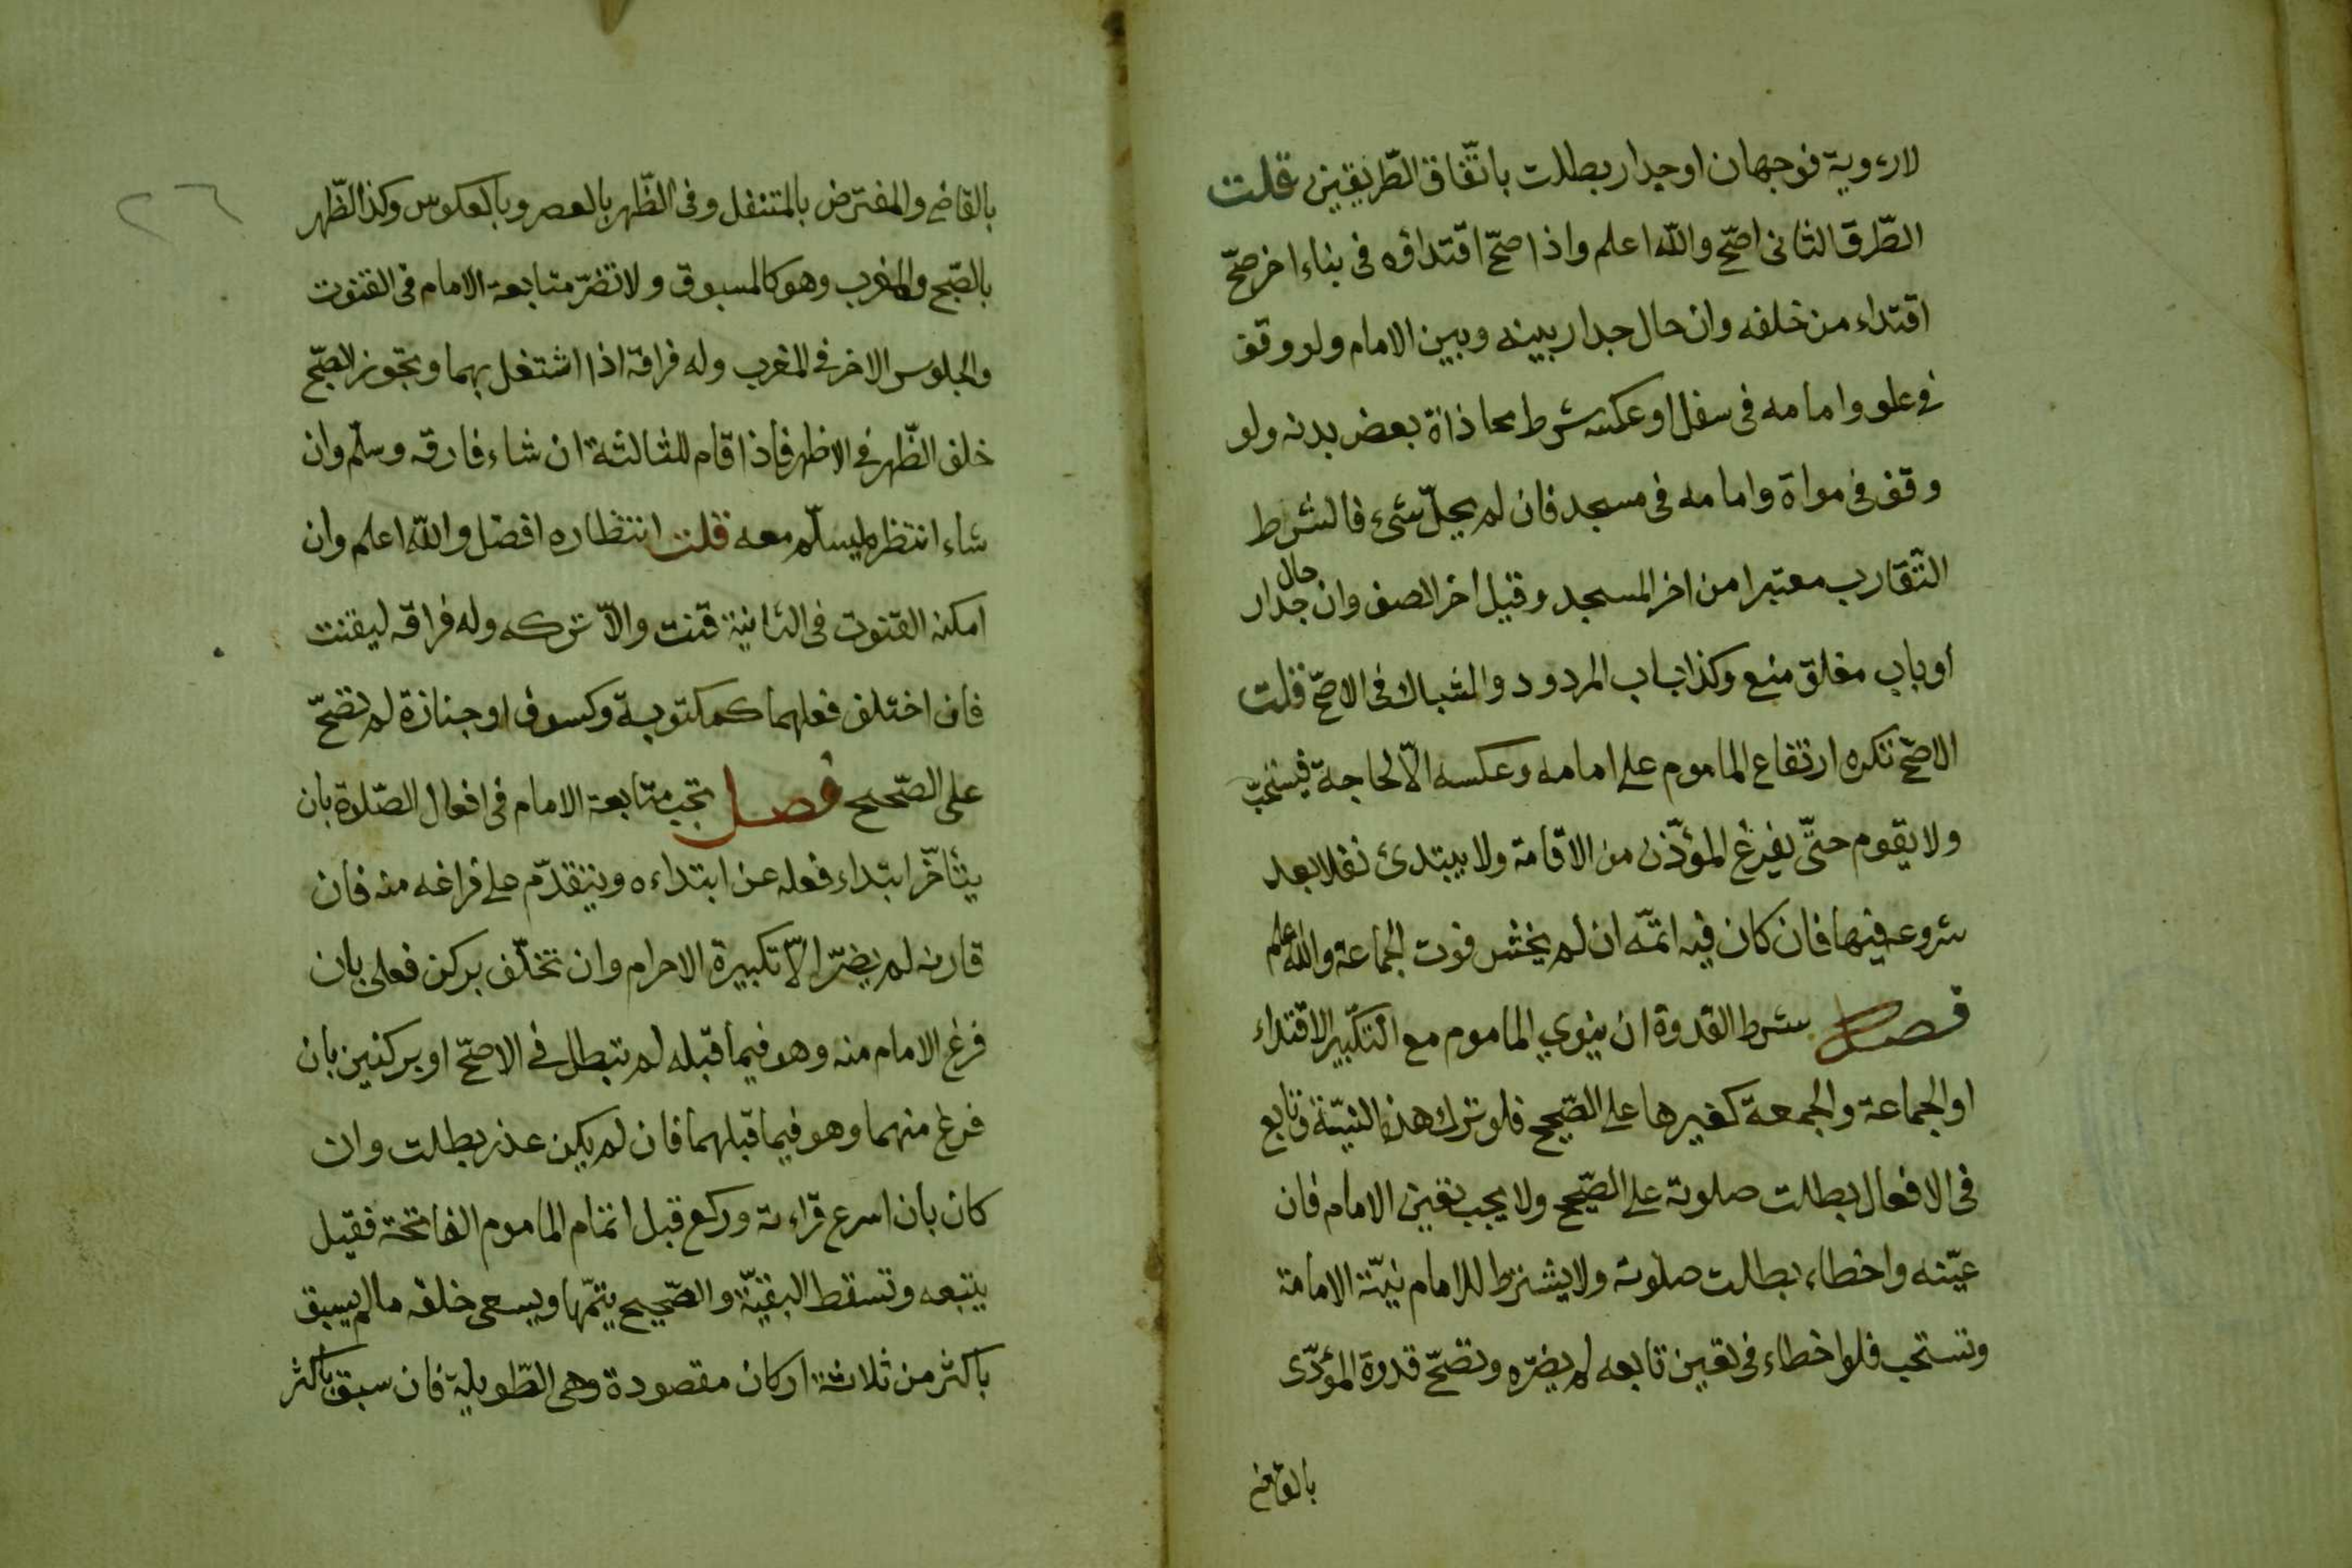 لارءوية فوجهان او جدار بطلت باتّفاق الطّريقين قلت
الطّرق الثانى اصحّ والله اعلم واذا صحّ اقتداؤه فى بناء اخر صحّ
اقتداء من خلفه وان حال جدار بينه وبين الامام ولو وقف
فى علو وامامه فى سفل او عكسه شرط محاذاة بعض بدنه ولو
وقف فى مواة وامامه فى مسجد فان لم يحلّ شىء فالشرط
التّقارب معتبرا من اخر المسجد وقيل اخر الصف وان حال جدار
او باب مغلق منع وكذا باب المردود والشباك فى الاصحّ قلت
الاصحّ تكره ارتفاع الماموم على امامه وعكسه الاّ لحاجة فيستحبّ
ولا يقوم حتّى يفرغ المؤذّن من الاقامة ولا يبتدئ نفلا بعد
شروعه فيها فان كان فيه اتمّه ان لم يخش فوت الجماعة والله اعلم
فصل شرط القدوة ان ينوي الماموم مع التكبير الاقتداء
او الجماعة والجمعة كغيرها على الصّحيح فلو ترك هذه النيّة وتابع
فى الافعال بطلت صلوته على الصّحيح ولا يجب تعيين الامام فان
عيّنه واخطاء بطلت صلوته ولا يشترط للامام نيّة الامامة
وتستحب فلو اخطاء فى تعين تابعه لم يضرّه وتصحّ قدوة المؤدّى
بالقاضى
٢٦
بالقاضى والمفترض بالمتنفل وفى الظّهر بالعصر وبالعكوس وكذا الظّهر
بالصّبح والمغرب وهو كالمسبوق ولا تضرّ متابعة الامام فى القنوت
والجلوس الاخر فى المغرب وله فراقه اذا اشتغل بهما وتجوز الصّبح
خلف الظّهر فى الاظهر فاذا قام للثالثة ان شاء فارقه وسلّم وان
شاء انتظر ليسلّم معه قلت انتظاره افضل والله اعلم وان
امكنه القنوت فى الثانية قنت والاّ تركه وله فراقه ليقنت
فان اختلف فعلهما كمكتوبة وكسوف او جنازة لم تصحّ
على الصّحيح فصل تجب متابعة الامام فى افعال الصّلوة بان
يتأخّر ابتداء فعله عن ابتداءه ويتقدّم على فراغه منه فان
قارنه لم يضرّ الاّ تكبيرة الاحرام وان تخلّف بركن فعلى بان
فرغ الامام منه وهو فيما قبله لم تبطل فى الاصحّ او بركنين بان
فرغ منهما وهو فيما قبلهما فان لم يكن عذر بطلت وان
كان بان اسرع قراءته وركع قبل اتمام الماموم الفاتحة فقيل
يتبعه وتسقط البقيّة والصّحيح يتمّها ويسعى خلفه ما لم يسبق
باكثر من ثلاثة اركان مقصودة وهى الطّويلة فان سبق باكثر